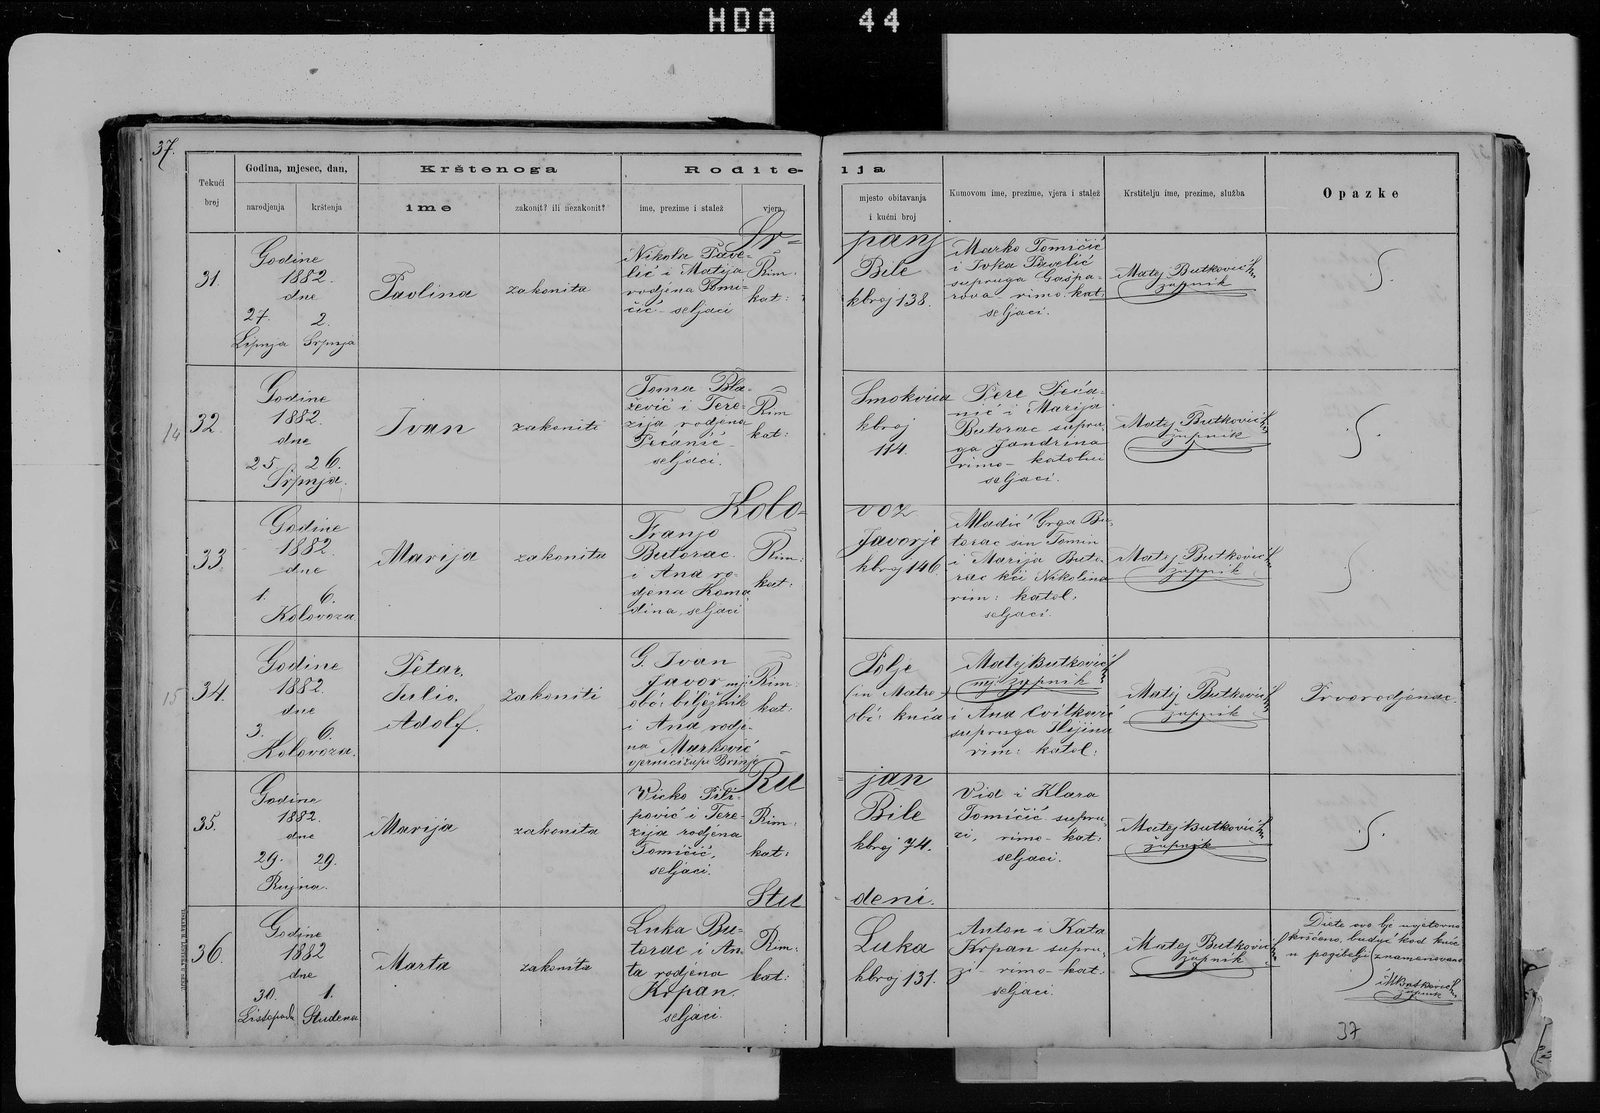 HDA 44
37.
Tekući
broj
Godina, mjesec, dan,
narodjenja
krštenja
Krštenoga
ime
zakonit? ili nezakonit?
Rodite-
lja
ime, prezime i stalež
vjera
mjesto obitavanja
i kućni broj
Kumovom ime, prezime, vjera i stalež
Krstitelju ime, prezime, služba
Opazke
Sr=
panj
31.
Godine
1882.
dne
27. 2.
Lipnja Srpnja
Paolina
zakonita
Nikola Pave-
lić i Matija
rodjena Tomi-
čić – seljaci
Rim.
kat:
Bile
kbroj 138.
Marko Tomičić
i Ivka Pavelić
supruga Gašpa-
rova rimo. kat.
seljaci.
Matej Butković
župnik
14
32.
Godine
1882.
dne
25. 26.
Srpnja.
Ivan
zakoniti
Toma Bla-
žević i Tere-
zija rodjena
Pićanić –
seljaci.
Rim
kat:
Smokvica
kbroj
114.
Pere Pića-
nić i Marija
Butorac supru-
ga Jandrina
rimo – katolici
seljaci.
Matej Butković
župnik
Kolo-
voz
33.
Godine
1882.
dne
1. 6.
Kolovoza
Marija
zakonita
Franjo
Butorac.
i Ana ro-
djena Koma
dina, seljaci
Rim:
kat:
Javorje
kbroj 146.
Mladić Grga Bu-
torac sin Tomin
i Marija Buto-
rac kći Nikolina
rim: katol:
seljaci.
Matej Butković
župnik
15
34.
Godine
1882.
dne
3. 6.
Kolovoza.
Petar,
Julio,
Adolf.
zakoniti
G. Ivan
Javor mj.
obć: bilježnik
i Ana rodje-
na Marković
Rim.
kat:
Polje
obć: kuća
Matej Butković
mj župnik
i Ana Cvitković
supruga Ilijina
rim: katol:
Matej Butković
župnik
Prvorodjenac.
Ru
=jan
35.
Godine
1882.
dne
29. 29.
Rujna.
Marija
zakonita
Vicko Fili-
pović i Tere-
zija rodjena
Tomičić,
seljaci.
Rim.
kat:
Bile
kbroj 74.
Vid i Klara
Tomičić supru-
zi, rimo – kat:
seljaci.
Matej Butković
župnik
Stu
=deni.
36.
Godine
1882
dne
30. 1.
Listopada Studena
Marta
zakonita
Luka Bu-
torac i An-
ta rodjena
Krpan.
seljaci.
Rim:
kat:
Luka
kbroj 131.
Anton i Kata
Krpan supru-
zi – rimo – kat.
seljaci.
Matej Butković
župnik
Diete ovo bje uvjetovno
kršćeno, buduć kod kuće
u pogibelji znamenovano
MButković
župnik
37